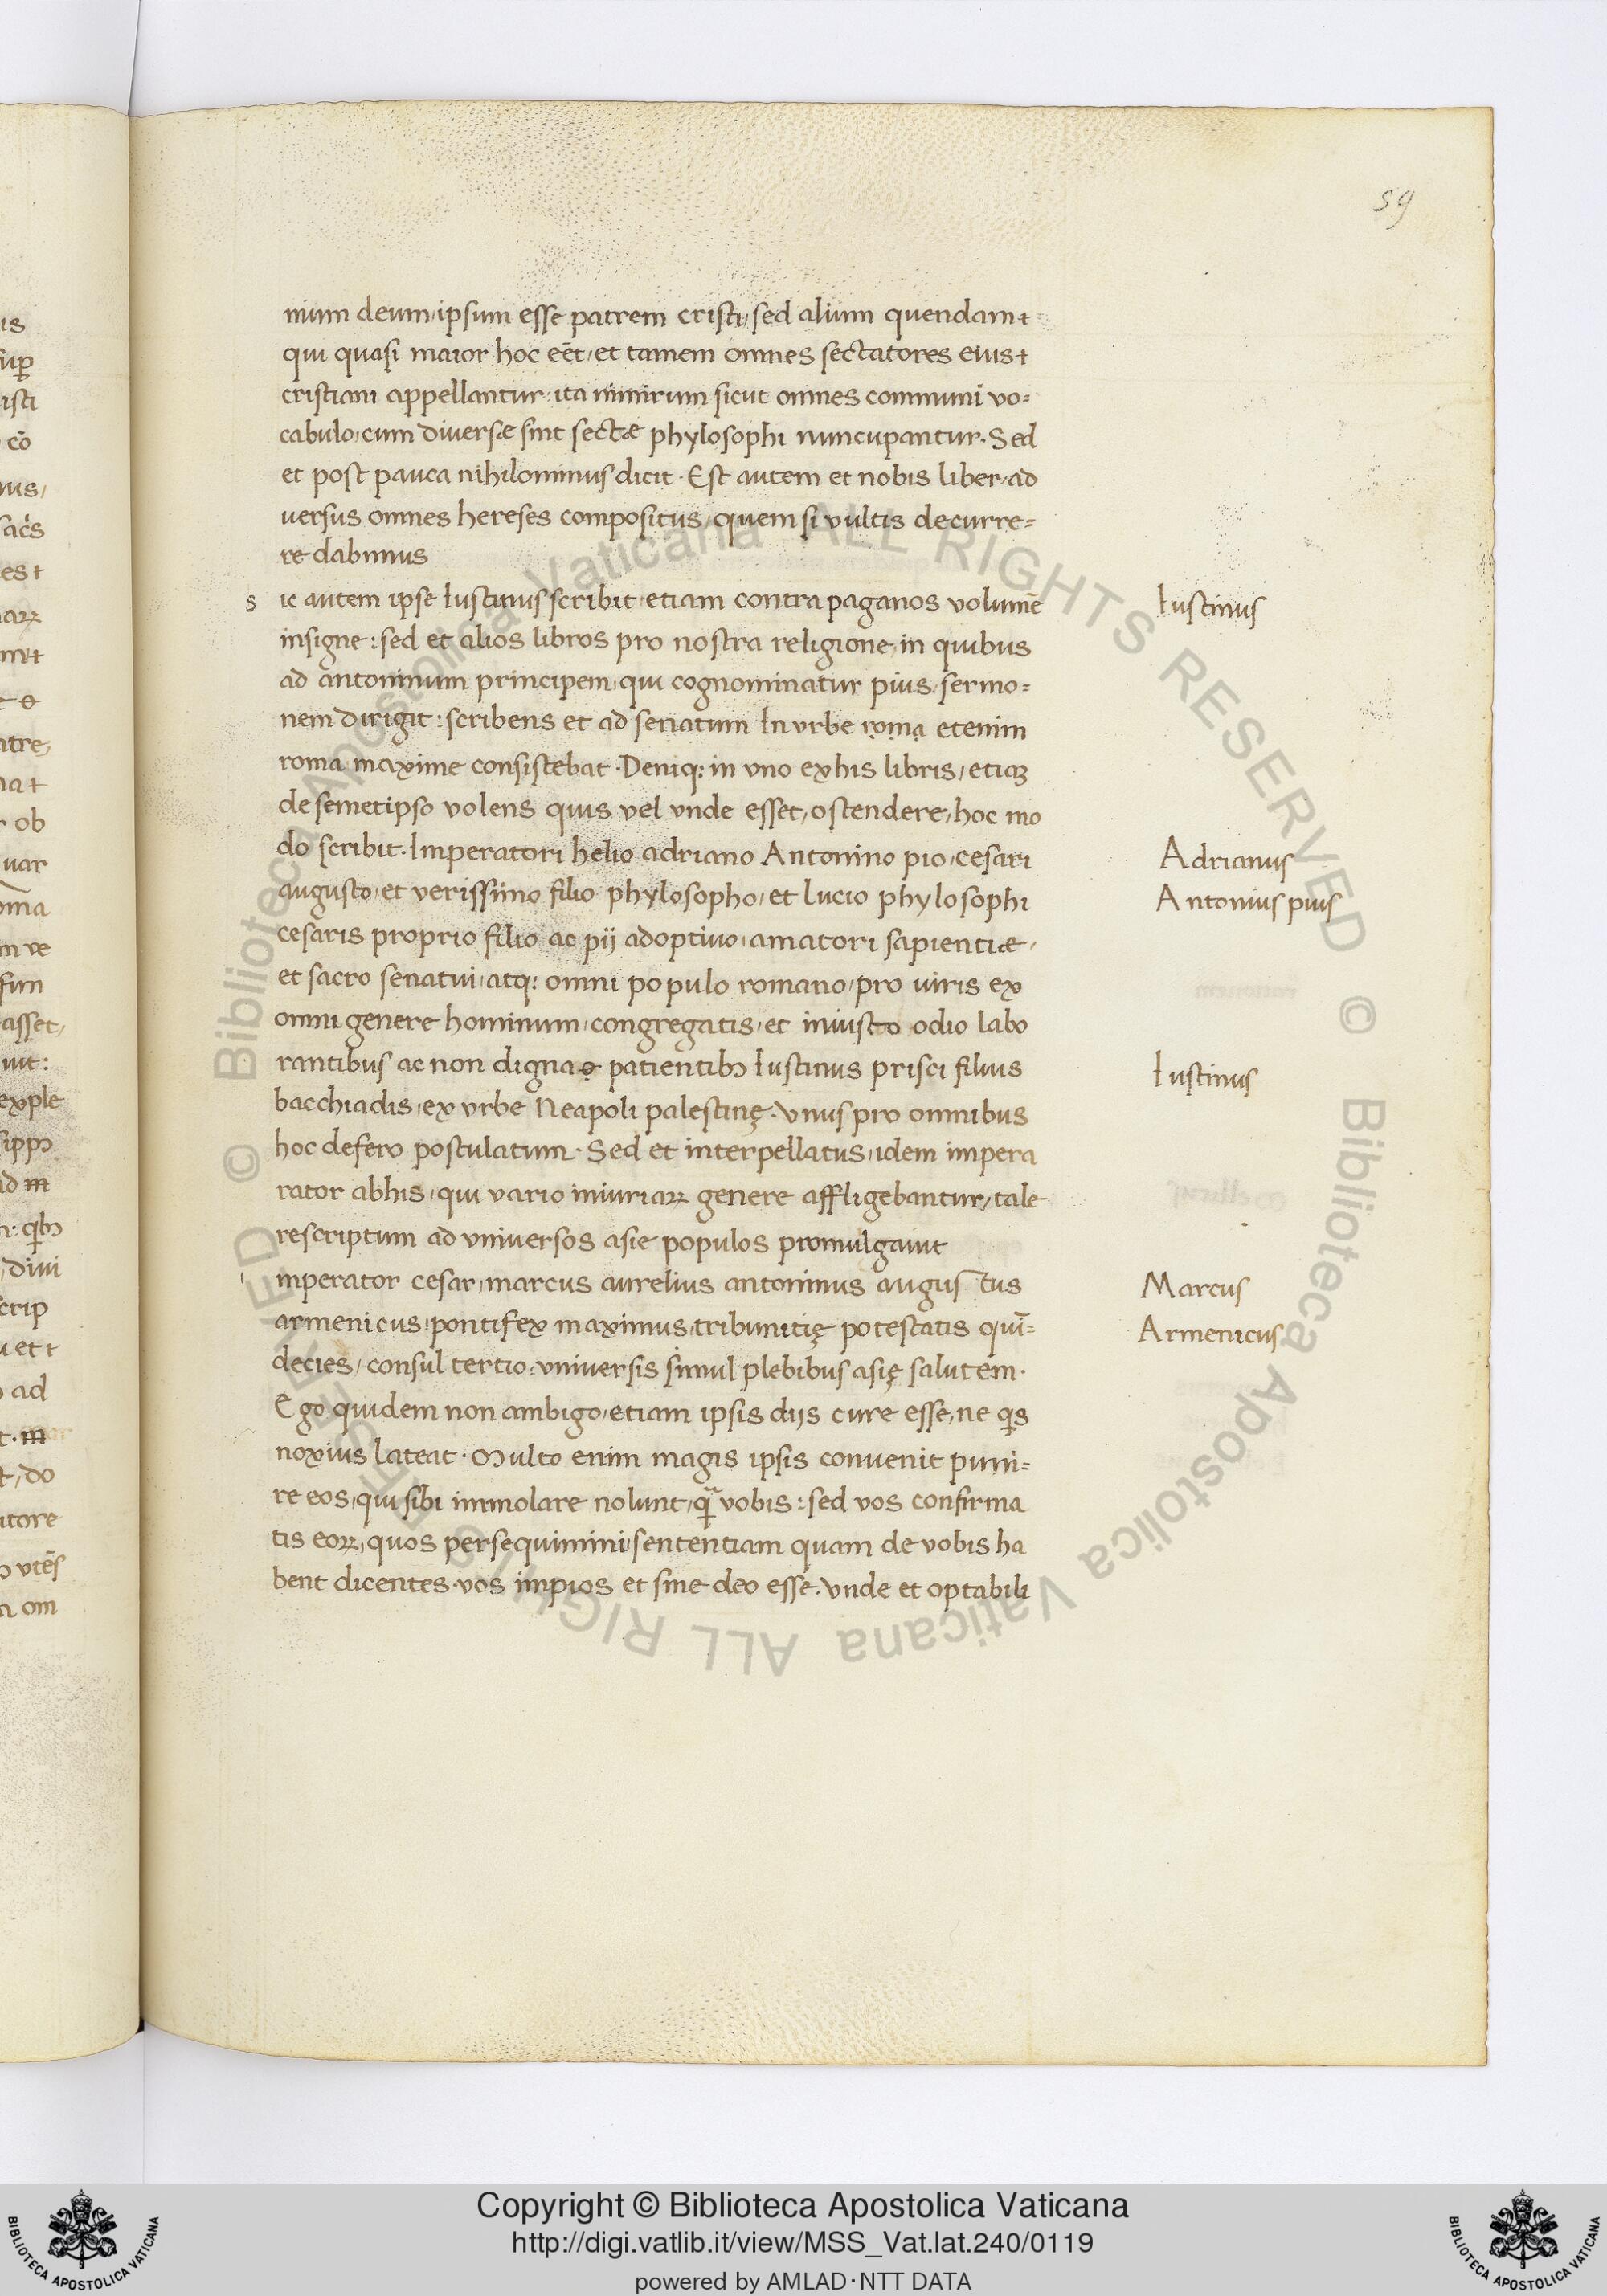 59
nium deum, ipsum esse patrem cristi, sed alium quendam
qui quasi maior hoc eēt, et tamem omnes sectatores eius
cristiani appellantur, ita nimirum sicut omnes communi vo=
cabulo, cum diversæ sint sectæ phylosophi nuncupantur. Sed
et post pauca nihilominus dicit. Est autem et nobis liber, ad
uersus omnes hereses compositus, quem si vultis decurre=
re dabimus
s ic autem ipse Iustinus scribit, etiam contra paganos volumē
Iustinus
insigne: sed et alios libros pro nostra religione, in quibus
ad antoninum principem, qui cognominatur pius, sermo=
nem dirigit: scribens et ad senatum In vrbe roma etenim
roma maxime consistebat. Deniq; in vno ex his libris, etiaȝ
de semetipso volens quis vel vnde esset, ostendere, hoc mo
do scribit. Imperatori helio adriano Antonino pio, cesari
Adrianus
augusto, et verissimo filio phylosopho, et lucio phylosophi
Antonius pius
cesaris proprio filio ac pij adoptivo, amatori sapientiæ,
et sacro senatui, atq; omni populo romano, pro uiris ex
omni genere hominum, congregatis, et iniusto odio labo
rantibus ac non digna patientibꝫ Iustinus prisci filius
Iustinus
bacchiadis, ex vrbe Neapoli palestinę. vnus pro omnibus
hoc defero postulatum. Sed et interpellatus, idem impera
rator abhis, qui vario iniuriaꝝ genere affligebantur, tale
rescriptum ad vniuersos asie populos promulgauit
i mperator cesar, marcus aurelius antoninus augustus
Marcus
armenicus, pontifex maximus, tribunitię potestatis quī=
Armenicus
decies, consul tertio, vniuersis simul plebibus asię salutem.
Ego quidem non ambigo, etiam ipsis dijs cure esse, ne qͥs
noxius lateat. Multo enim magis ipsis convenit puni=
re eos, qui sibi immolare nolunt, qͣ̄ vobis: sed vos confirma
tis eoꝝ, quos persequimini, sententiam quam de vobis ha
bent dicentes. vos impios et sine deo esse. vnde et optabili
© Biblioteca Apostolica Vaticana ALL RIGHTS RESERVED © Biblioteca Apostolica Vaticana ALL RIGHTS RESERVED
Copyright © Biblioteca Apostolica Vaticana
http://digi.vatlib.it/view/MSS_Vat.lat.240/0119
powered by AMLAD·NTT DATA
BIBLIOTECA APOSTOLICA VATICANA
BIBLIOTECA APOSTOLICA VATICANA